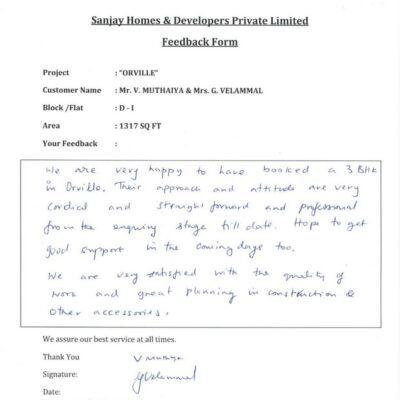 Sanjay Homes & Developers Private Limited
Feedback Form
Project : "ORVILLE"
Customer Name : Mr. V. MUTHAIYA & Mrs. G. VELAMMAL
Block /Flat : D - I
Area : 1317 SQ FT
Your Feedback :
We are very happy to have booked a 3 BHK
in Orville. Their approach and attitude are very
cordial and straight forward and professional
from the enquiry stage till date. Hope to get
good support in the coming days too.
We are very satisfied with the quality of
work and great planning in construction &
other accessories.
We assure our best service at all times.
Thank You
Signature: GVelammal
Date: